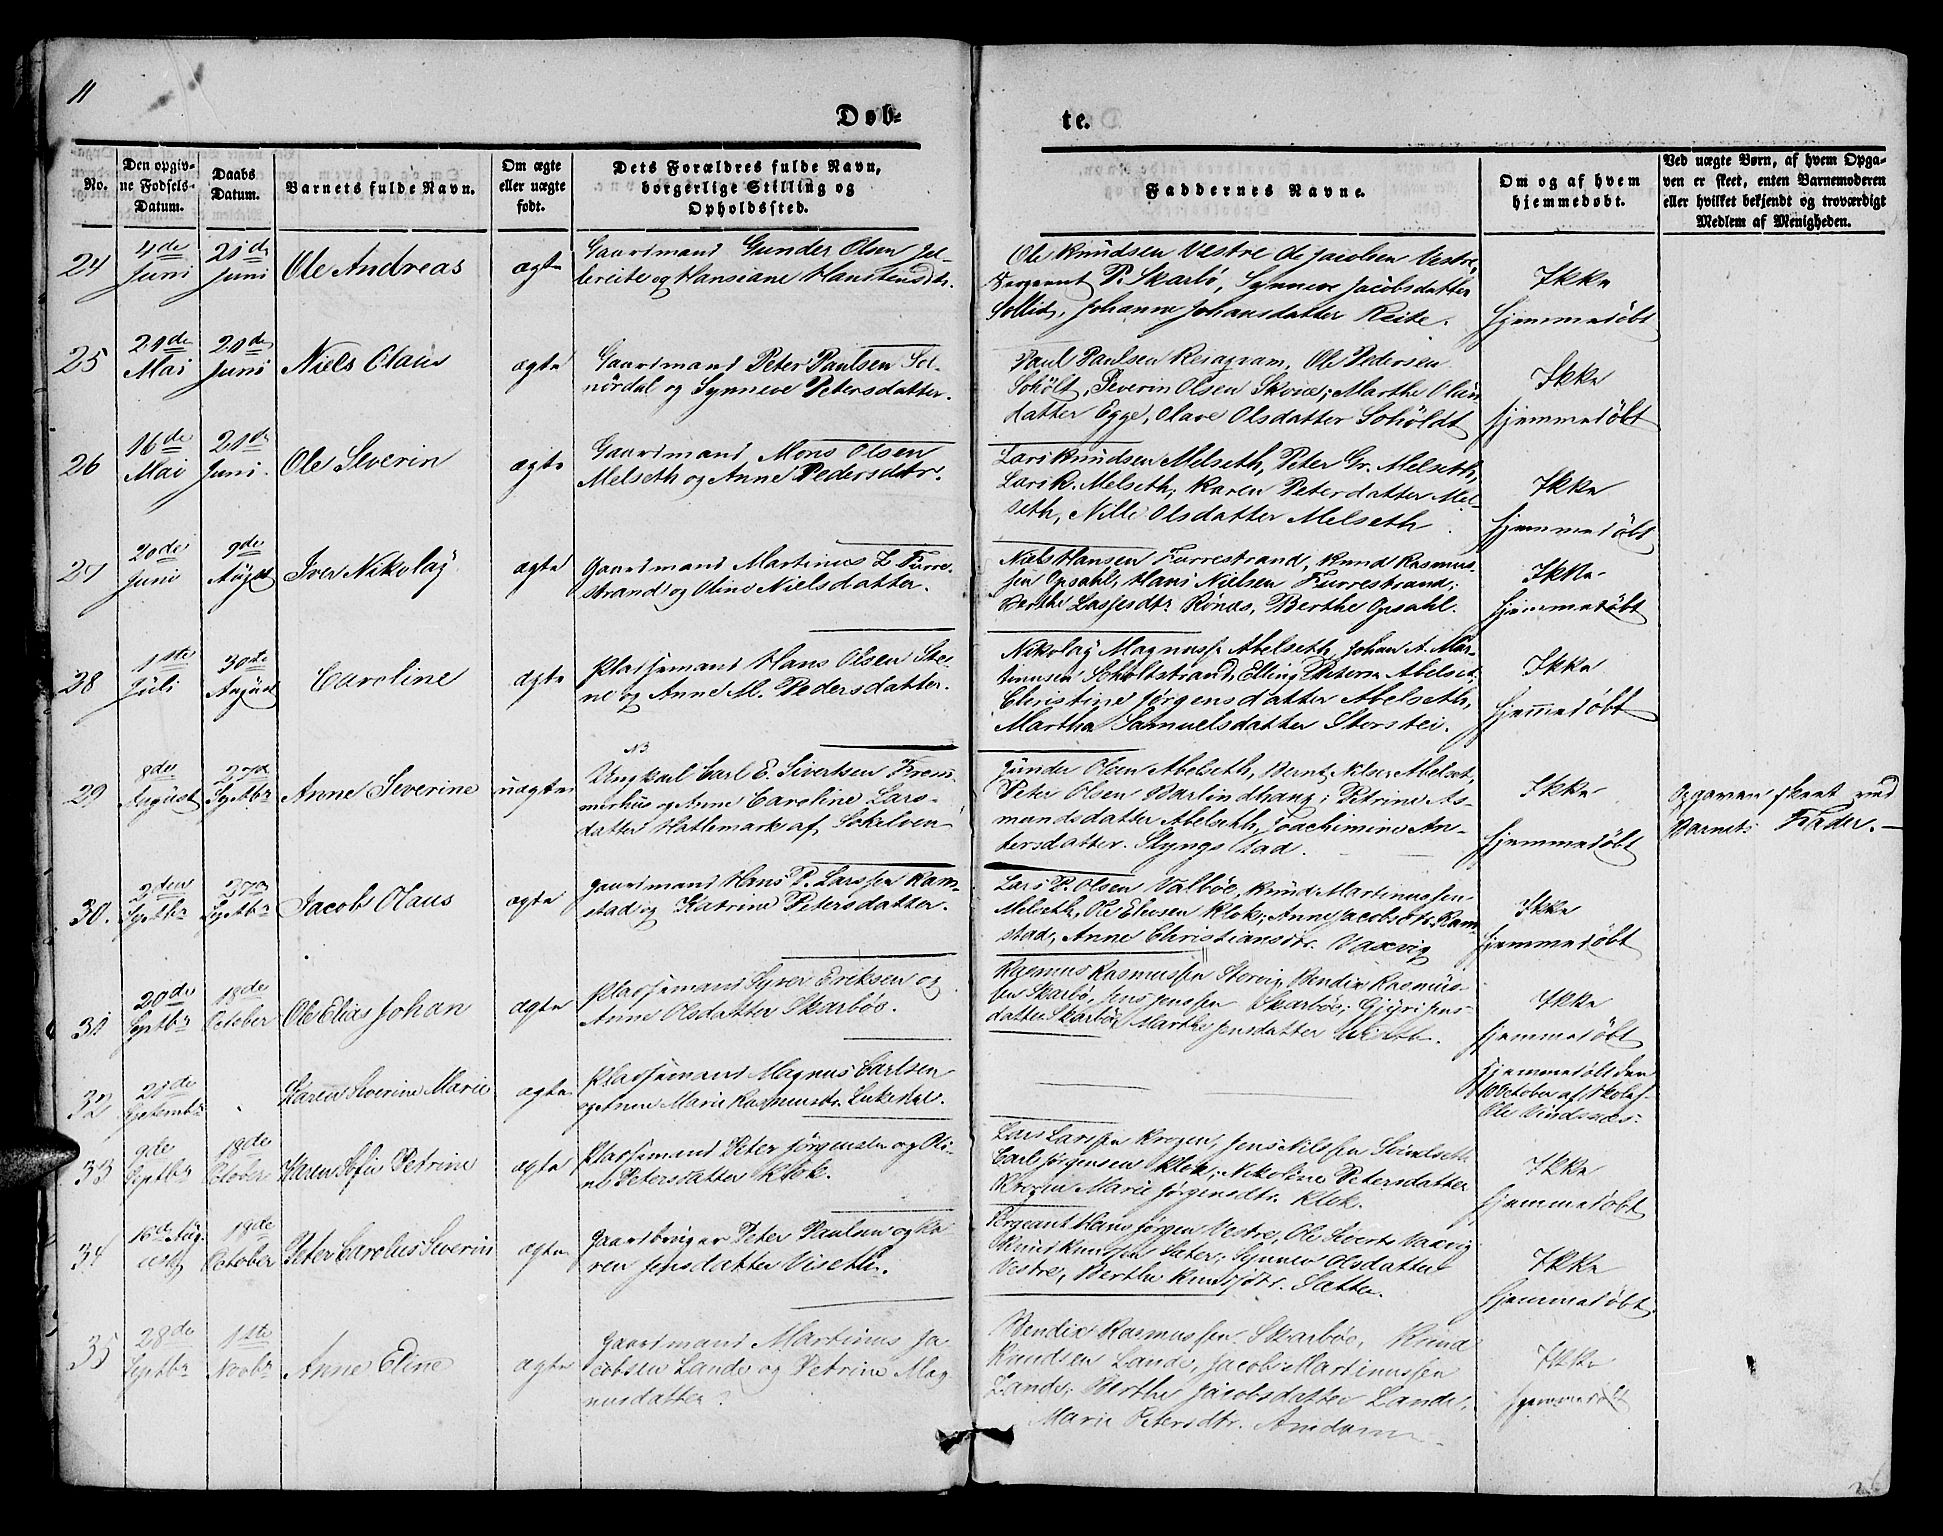 11
Døb-
te.
No.
Den opgiv-
ne Fødsels-
Datum.
Daabs
Datum.
Barnets fulde Navn.
Om ægte
eller uægte
født.
Dets Forældres fulde Navn,
borgerlige Stilling og
Opholdssted.
Faddernes Navne.
Om og af hvem
hjemmedøbt.
Ved uægte Børn, af hvem Opga-
ven er skeet, enten Barnemoderen
eller hvilket bekjendt og troværdigt
Medlem af Menigheden.
24
4de
Juni
21de
Juni
Ole Andreas
ægte
Gaardmand Gunder Olsen
og Hansiane
Ole Knudsen Vestre, Ole Jacobsen Vestre,
Sergeant P. Skarbö, Synneve Jacobsdatter
Sollid, Johanne Johansdatter Reite.
Ikke
hjemmedöbt
25
29de
Mai
20de
Juni
Niels Olaus
ægte
Gaardmand Peter Paulsen Sol-
nördal og Synneve Petersdatter.
Paul Paulsen Ole Pedersen
Soholt, Severin Olsen Marthe
datter Egge, Olave Olsdatter Soholdt
Ikke
hjemmedöbt
26
16de
Mai
21de
Juni.
Ole Severin
ægte
Gaardmand Mons Olsen
Melseth og Anne Pedersdtr.
Lars Knudsen Melseth, Peter Gr. Melseth,
Lars K. Melseth; Karen Petersdatter Mel-
seth, Nille Olsdatter Melseth
Ikke
hjemmedöbt
27
20de
Juni
9de
August
Iver Nikolay
ægte
Gaardmand Martinus L Furre-
strand og Oline Nielsdatter.
Niels Hansen Furrestrand, Knud Rasmus-
sen Opsahl, Hans Nielsen Furrestrand;
Berthe Lassesdtr Rönæs, Berthe Opsahl.
Ikke
hjemmedöbt
28
1ste
Juli
30te
August
Caroline
ægte
Pladsemand Hans Olsen Ste-
ne og Anne M. Pedersdatter.
Nikolay Magnuss. Abelseth, Johan A. Mar-
tinusen Elling Petersen Abelset,
Christine Jörgensdatter Abelseth,
Martha Samuelsdatter
Ikke
hjemmedöbt
29
8de
August
27de
Septbr
Anne Severine
uægte
NB
Ungkarl Carl E. Sivertsen Frem-
merhus og Anne Caroline Lars-
datter Hathemark af Sökelven
Gunder Olsen Abelseth, Bernt Nilsen Abelset,
Peter Olsen Barlindhaug; Petrine As-
mundsdatter Abelseth, Joachimine An-
dersdatter. Slyngstad.
Ikke
hjemmedöbt
Opgaven skeet ved
Barnets Fader.-
30.
2den
Septbr
27de
Septbr
Jacob Olaus
ægte
Gaardmand Hans P. Larssen Ram-
stad og Katrine Petersdatter.
Lars P. Olsen Valböe, Knud Martinussen
Melseth, Ole Klok; Anne Jacobsdtr. Ram-
stad, Anne Christiansdtr. Vaxvig
Ikke
hjemmedöbt
31
20de
Septbr
18de
October
Ole Elias Johan
ægte
Pladsemand Syver Eriksen og
Anne Olsdatter Skarböe.
Rasmus Rasmussen Storvig, Bendix Rasmus-
sen Skarbö, Jens Jenssen Skarböe; Gjyri Jens-
datter Skarböe, Marthe Jensdatter
Ikke
hjemmedöbt
32
21de
Septembr
Karen Severine Marie
ægte
Pladsemand Magnus Carlsen
og Anne Marie Rasmusdtr.
Hjemmedöbt den
October af Skolel.
Ole Vindsnæs.
33
9de
Septbr
18de
October
Karen Sofie Petrine
ægte
Pladsemand Peter Jörgensen og Oli-
ne Petersdatter Klok.
Lars Larssen Krogen, Jens Nilssen
Carl Jörgensen Klok; Nikoline Petersdatter
Krogen Marie Jörgensdtr. Klok.
Ikke
hjemmedöbt
34
16de Aug-
ust
18de
October
Peter Carolus Severin
ægte
Gaardbruger Peter Paulsen og Ka-
ren Jensdatter Viseth.
Sergeant Hans Jörgen Vestre, Ole Siverts. Vaxvig
Knud Knudssen Sæter; Synnev Olsdatter
Vestre, Berthe Knudsdtr. Sætter.
Ikke
hjemmedöbt
35
28de
Septbr
1ste
Novbr
Anne Eline
ægte
Gaardmand Martinus Ja-
cobsen Lande og Petrine Mag-
nusdatter.
Bendix Rasmussen Skarböe, Knud
Knudsen Lande, Jacob Martinussen
Lande; Berthe Jacobsdatter Lande,
Marie Petersdtr. Amdam.
Ikke
hjemmedöbt